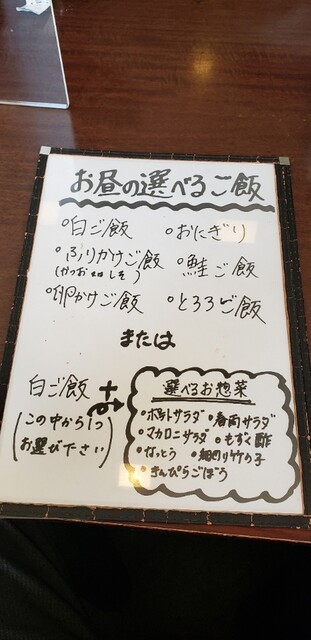 お昼の選べるご飯
○白ご飯 ○おにぎり
○ふりかけご飯 ○鮭ご飯
(かつお or しそ)
○卵かけご飯 ○とろろご飯
または
白ご飯 +
(この中から1つ
お選び下さい)
選べるお惣菜
○ポテトサラダ ○春雨サラダ
○マカロニサラダ ○もずく酢
○なっとう ○細切り竹の子
○きんぴらごぼう